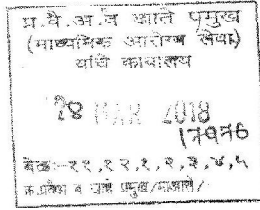 प्र.वै.अ.व खाते प्रमुख
(माध्यमिक आरोग्य सेवा)
यांचे कार्यालय
28 MAR 2018
17976
वेळ:-११,१२,१,२,३,४,५